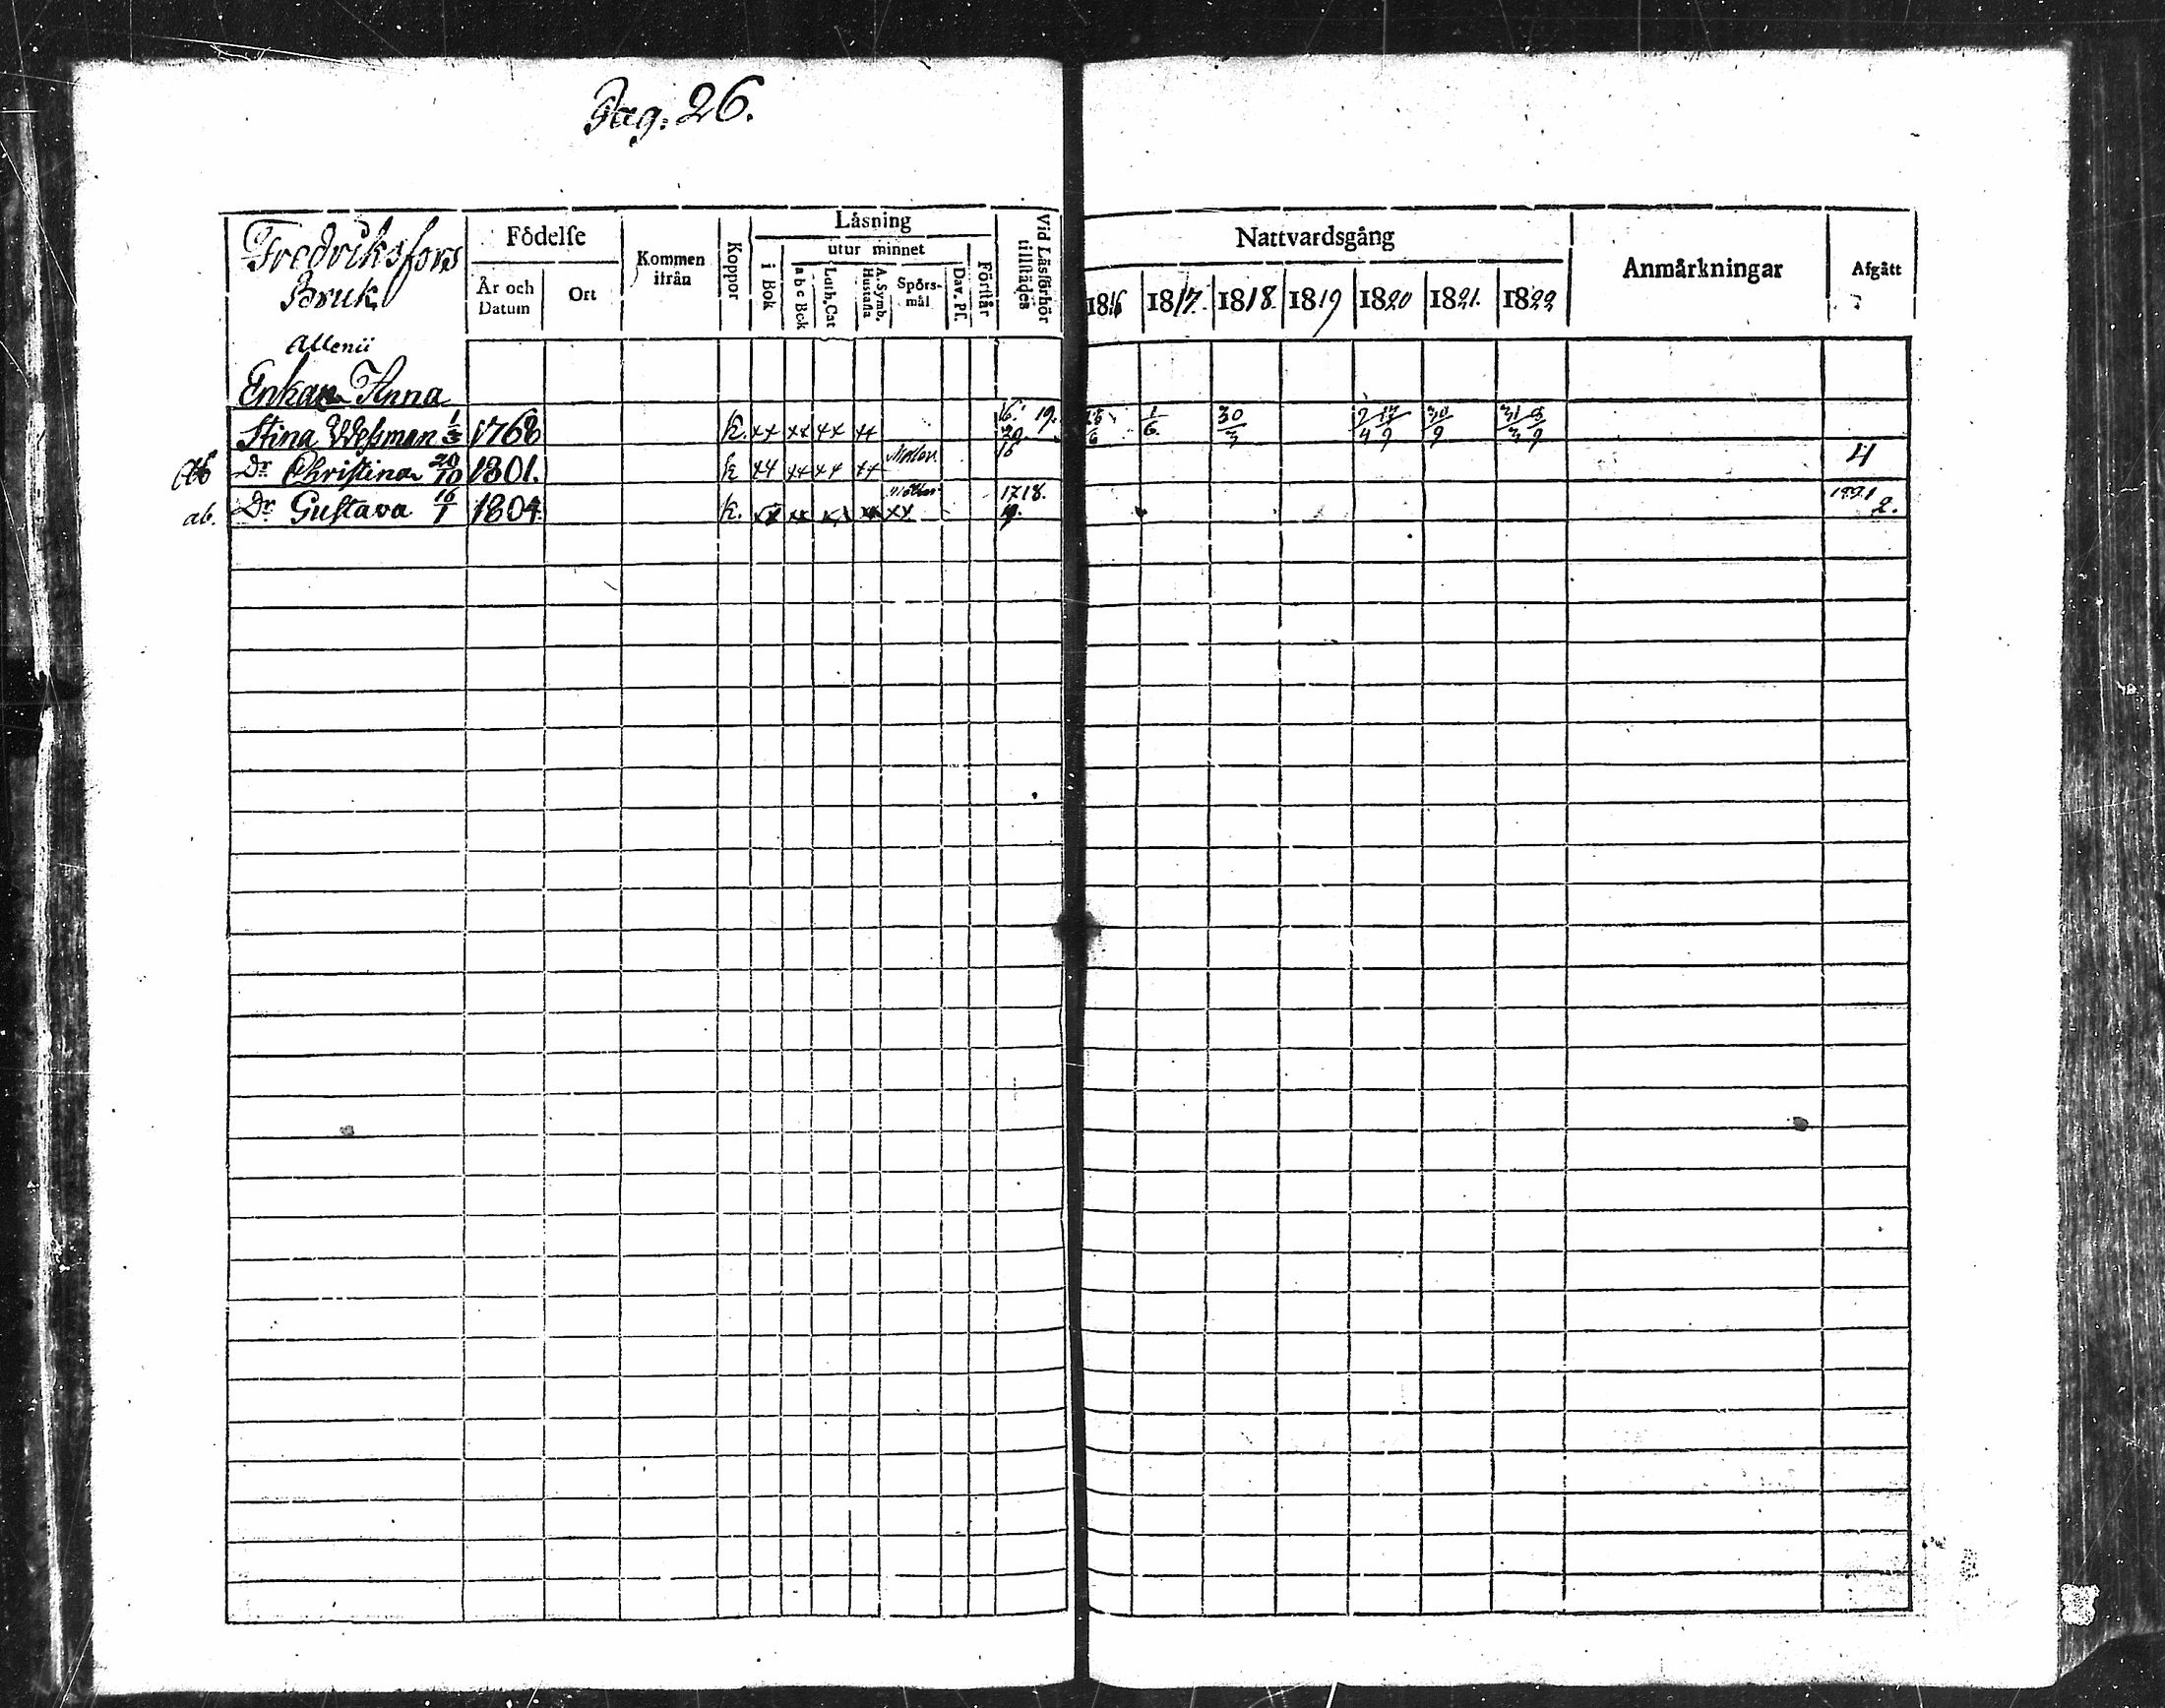 Pag. 26.
Fredriksfors
Bruk
Födelse
År och Datum
Ort
Kommen ifrån
Koppor
Läsning
i Bok
utur minnet
a b c Bok
Luth. Cat
A. Symb. Hustafla
Spörsmål
Dav. Ps.
Förstår
Vid Läsförhör tillstädes
Nattvardsgång
1816 1817. 1818. 1819 1820 1821. 1822
Anmärkningar
Afgått
Enkan Anna
Stina Wessman 1/3 1768 k. xx xx xx xx 16. 19. 20. 1/6 30/3 30/9
ab Dr Christina 20/10 1801. k xx xx xx xx 16 4
ab. Dr Gustava 16/1 1804. k. xx xx xx xx xx 17 18. 19. 1821 2.